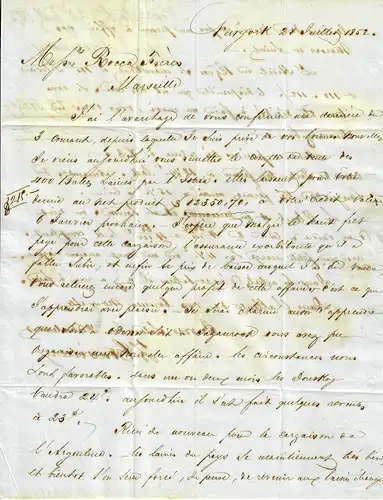 Newyork 27 Juillet 1852.
Mess.rs Rocca Frères
Marseille
J'ai l'avantage de vous confirmer ma dernière du
3 courant, depuis laquelle je suis privé de vos bonnes nouvelles
Je viens aujourd'hui vous remettre le compte de vente des
400 Balles laines par l'Isaïe. Elles laissent pour votre
au net produit $ 12350,70 à votre crédit valeur
6 Janvier prochain. J'espère que malgré le haut fret
payé pour cette cargaison, l'assurance exorbitante qu'il a
fallu subir, et enfin le prix de baisse auquel j'ai dû vendre
vous retirerez encore quelque profit de cette affaire; c'est ce que
j'apprendrai avec plaisir. Je serai charmé aussi d'apprendre
que soit soit vous avez pu
organiser une nouvelle affaire. les circonstances nous
sont favorables. dans un ou deux mois les
vaudra 24. aujourd'hui il s'est fait quelques
à 23.
Rien de nouveau pour la cargaison de
l'Argentine. les laines du pays se maintiennent
et bientôt l'on sera forcé, je pense, de revenir aux laines étrangères